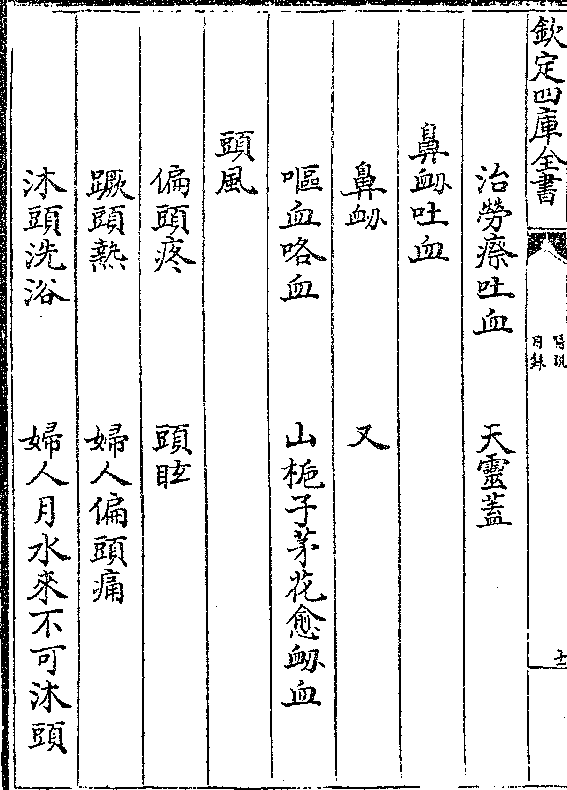 欽定四庫全書
醫說
目録
治勞瘵吐血　天靈蓋
鼻衂吐血
鼻衂　又
嘔血咯血　山梔子茅花愈衂血
頭風
偏頭疼　頭眩
蹶頭熱　婦人偏頭痛
沐頭洗浴　婦人月水來不可沐頭